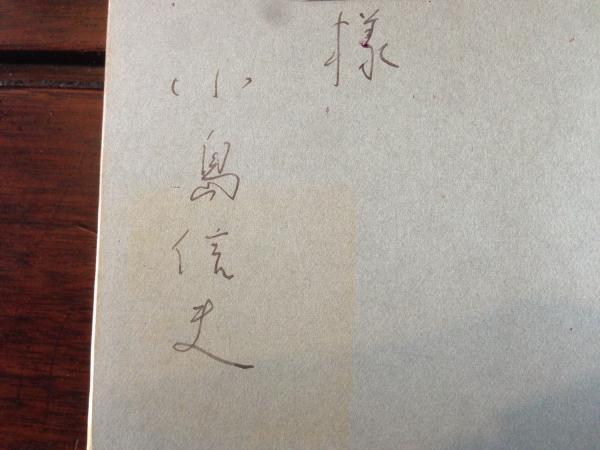 様
小島信夫